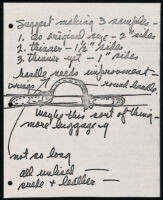 Suggest making 3 samples -
1. as original size - 2" sides
2. thinner - 1½" sides
3. thinner yet - 1" sides
handle needs improvement -
round handle.
Maybe this sort of thing -
more luggage-y
not so long
all unlined -
suede & leather -